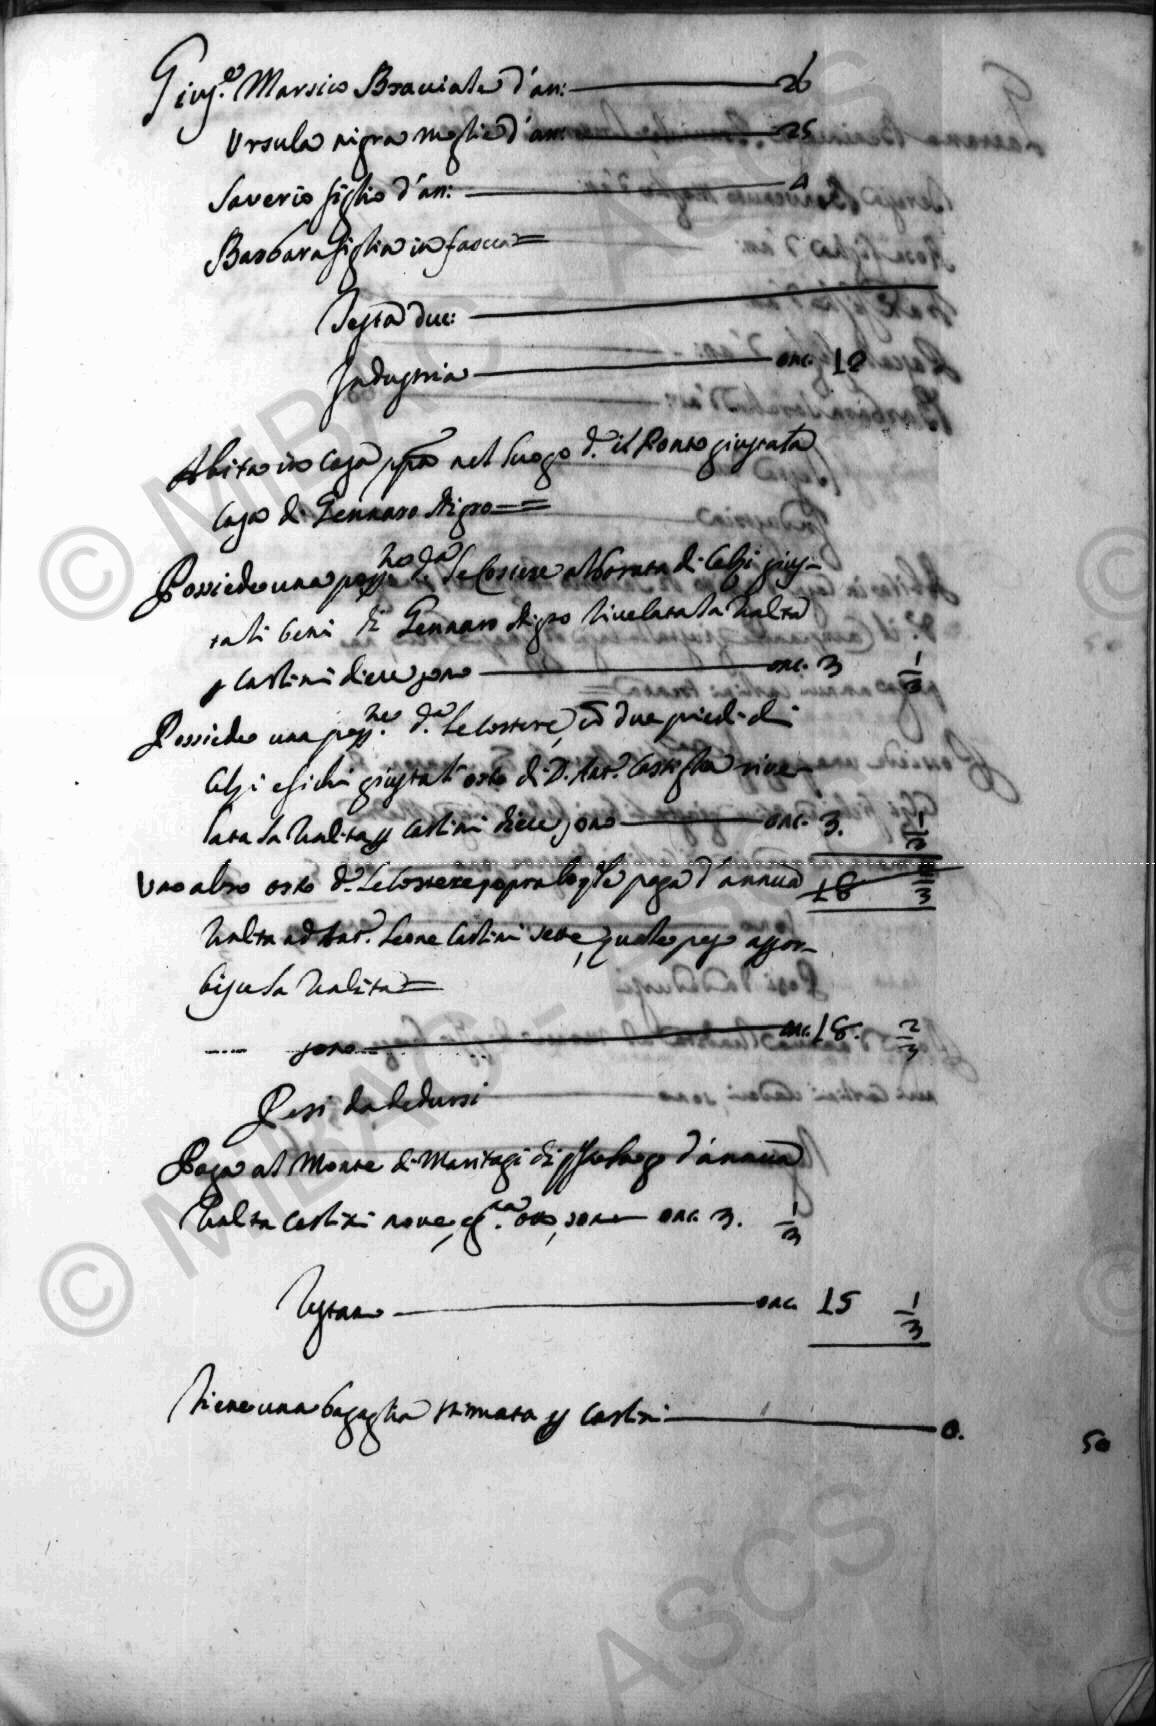 Gius.e Marsico Bracciale d'an: 26
Ursula nigra moglie d'an: 25
Saverio figlio d'an: 4
Barbara figlia in fascia
Testa duc:
Industria onc. 12
Abita in casa ppa nel luogo d.o il Ponte giusta la
casa di Gennaro Nigro
Possiede una poss.ne d.a le Costere alborata di Celzi gius-
ta li beni di Gennaro Nigro livellata la rendita
p carlini diece sono onc. 3 1/3
Possiede una poss.ne d.a le Costere, con due piedi di
Celzi e fichi giusta l'orto di D. Ant.o
la rendita p Carlini diece sono onc. 3. 1/3
Uno altro orto d.o le Costere sopra lo q.le paga d'annua
ad Ant.o Leone Carlini sette, quale peso assor-
bisce la rendita
sono onc. 18. 2/3
Pesi da dedursi
Paga al Monte di Maritagi di luogo d'annua
Carlini nove, sono onc. 3. 1/3
Restano onc. 15 1/3
Tiene una bagaglia stimata p Carlini 0. 50
© MIBAC - ASCS
© MIBAC - ASCS
ASCS